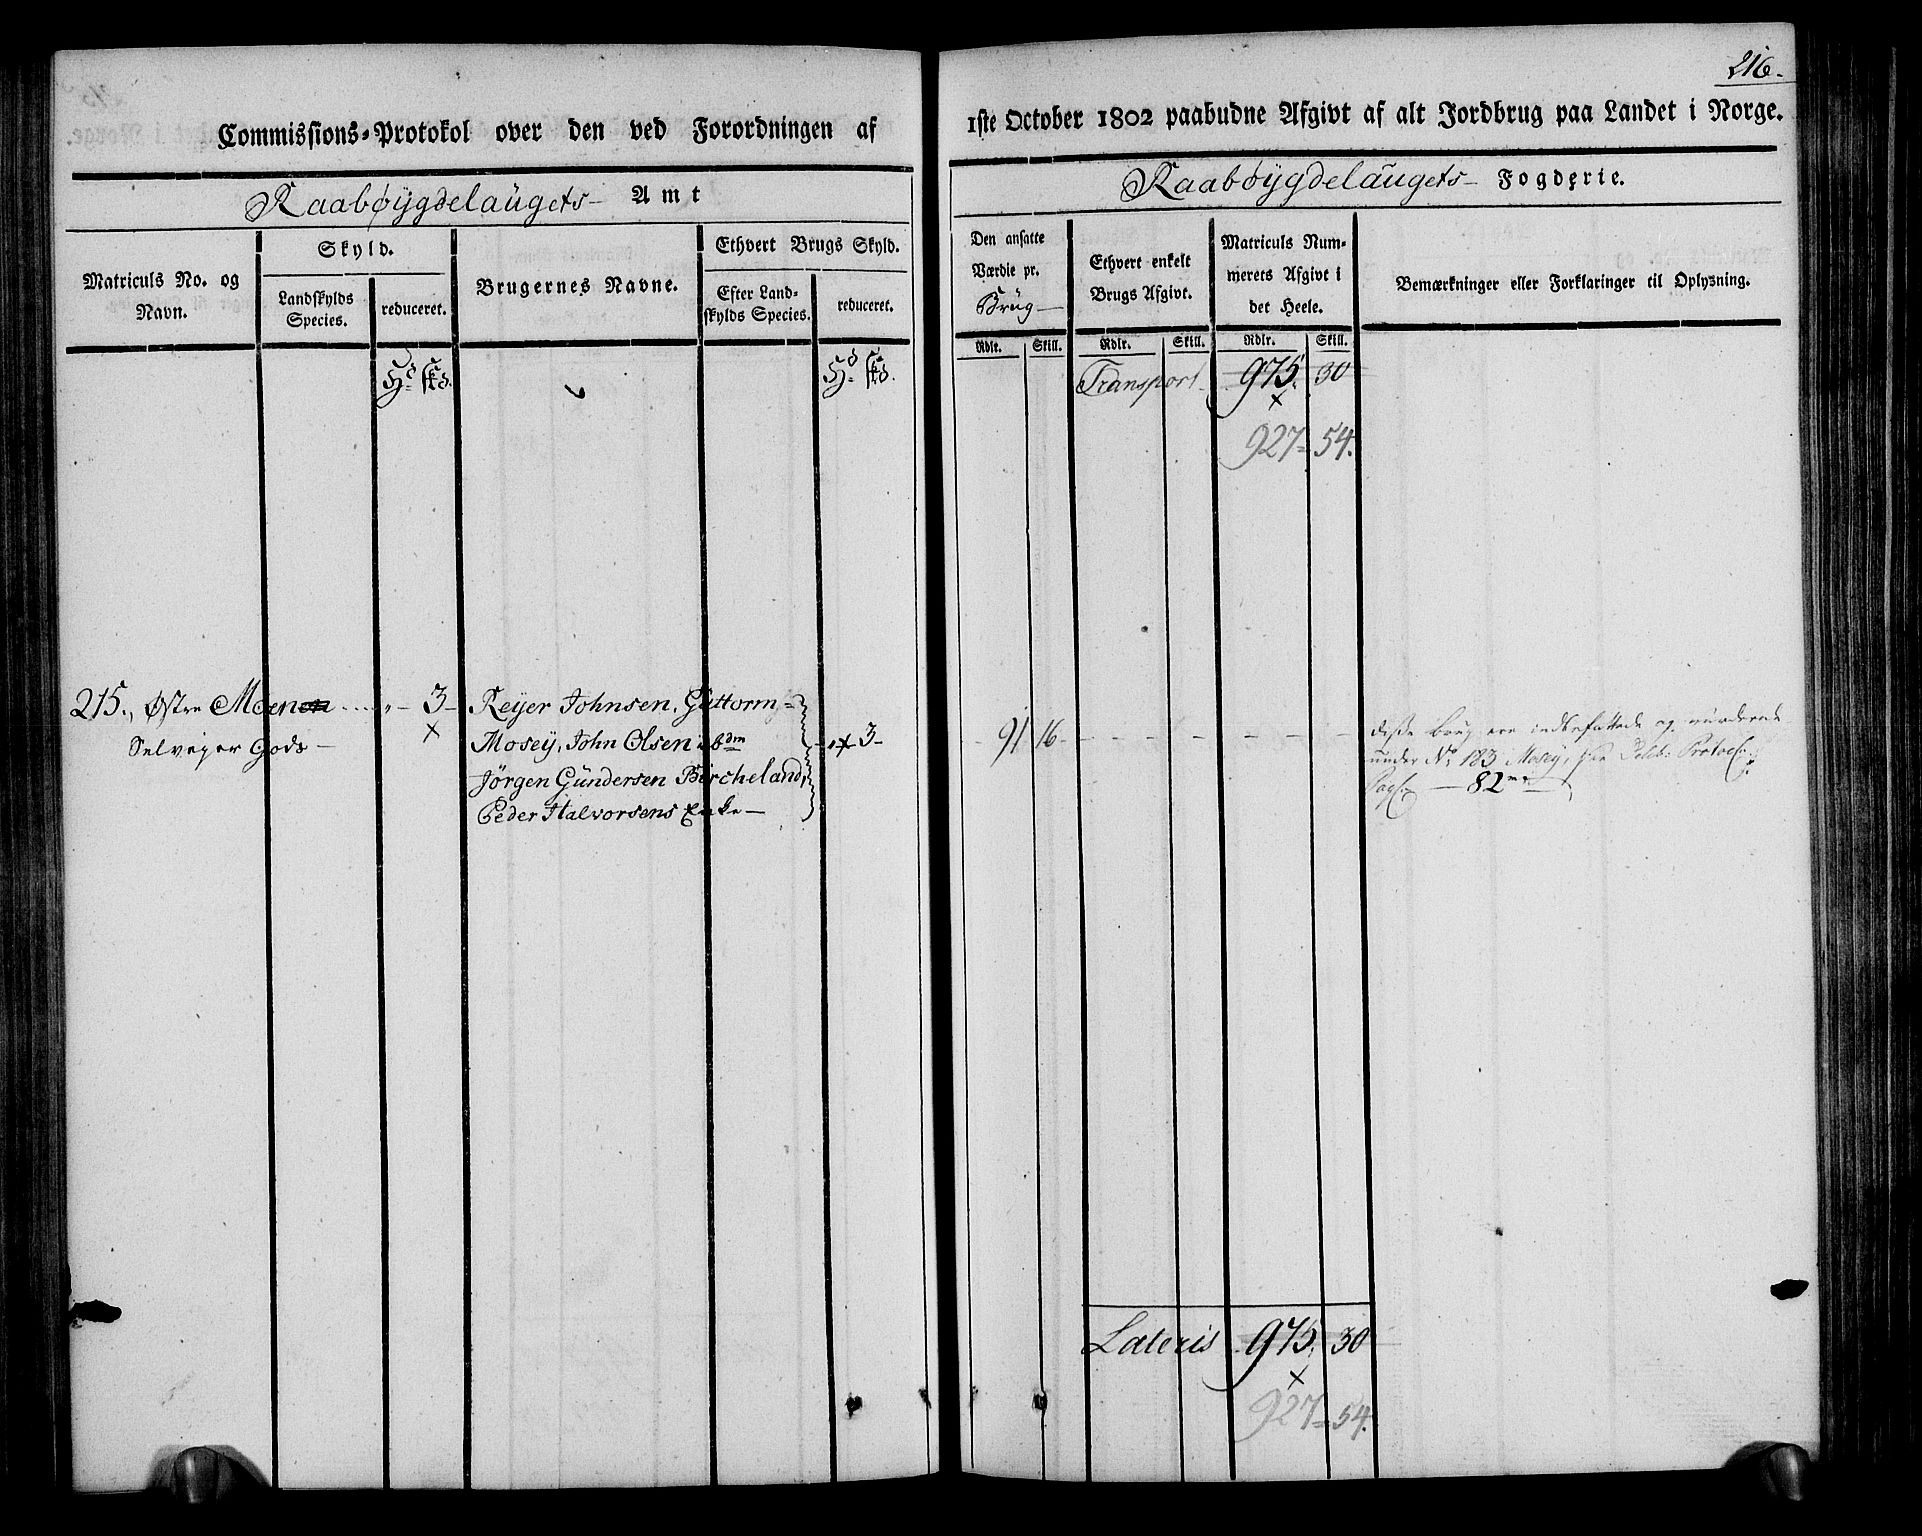 216.
Commissions-Protokol over den ved Forordningen af
1ste October 1802 paabudne Afgivt af alt Jordbrug paa Landet i Norge.
Raabøygdelaugets Amt
Raabøygdelaugets Fogderie.
Matriculs No. og Navn.
Skyld.
Landskylds Species.
reduceret.
Brugernes Navne.
Ethvert Brugs Skyld.
Efter Landskylds Species.
reduceret.
Den ansatte Værdie pr. Brug
Ethvert enkelt Brugs Afgivt.
Matriculs Nummerets Afgivt i det Heele.
Bemærkninger eller Forklaringer til Oplysning.
Rdlr. Skill. Rdlr. Skill. Rdlr. Skill.
Transport 975. 30
927 54.
215., Østre Moen 3 Reyer Johnsen, Guttorm
Selveyer Gods Mosey, John Olsen 3 91 16 disse Brug ere indbefattede og vurderede
Jörgen Gundersen Bircheland, under No 183 Mosey,
Peder Halvorsens Enke 82
Lateris 975. 30
927 54.